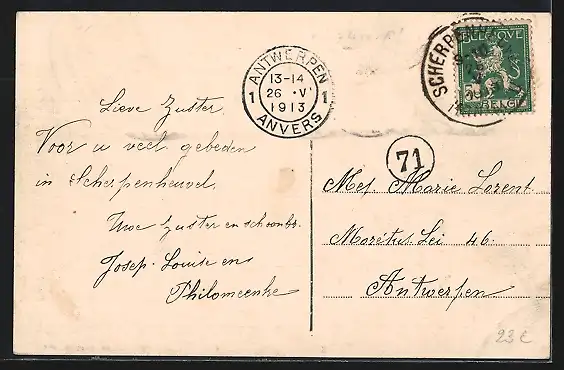 Lieve Zuster
Voor u veel gebeden
in Scherpenheuvel.
Uwe Zuster en schoonbr.
Josep. Louise en
Philomeenke
ANTWERPEN
13-14
1 26 · V 1
1913
ANVERS
SCHERPEN
BELGIQUE
5
BELGIË
71
Mej. Marie Lorent.
Morétus Lei 46.
Antwerpen
23 €